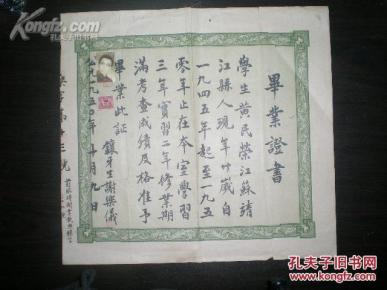 畢業證書
學生黃民榮江蘇靖
江縣人現年廿歲自
一九四五年起至一九五
零年止在本室學習
三年實習二年修業期
滿考查成績及格准予
畢業此証
鑲牙生謝樂儀
公元一九五〇年十月九日
孔夫子旧书网
KONGFZ.COM
孔夫子旧书网
www.kongfz.com